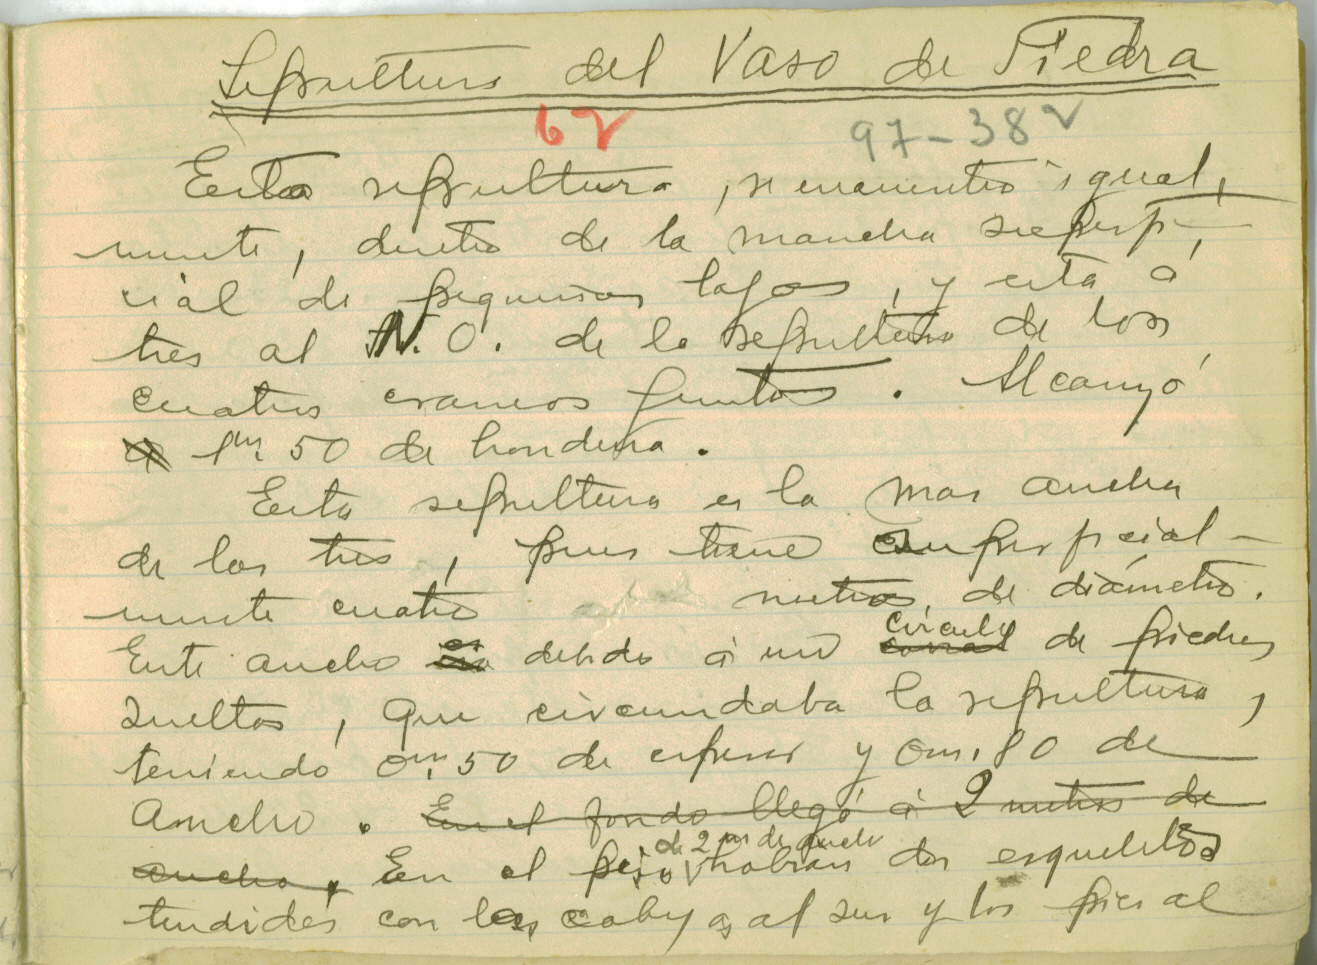 Sepultura del Vaso de Piedra
6 V 97-38 V
Esta sepultura, se encuentra igual,
mente, dentro de la mancha superfi-
cial de pequeñas lajas, y esta á
tres al N.O. de la sepultura de los
cuatro craneos juntos. Alcanzó
a 1m 50 de hondura.
Esta sepultura es la mas ancha
de las tres, pues tiene superficial-
mente cuatro metros, de diámetro.
Este ancho es debido á un circulo de piedras
sueltas, que circundaba la sepultura,
teniendo 0m.50 de espesor y 0m.80 de
Ancho. En el fondo llegó á 2 metros de
ancho. En el piso de 2 ms de ancho habian dos esqueletos
tendidos con las cabezas al sur y los pies al